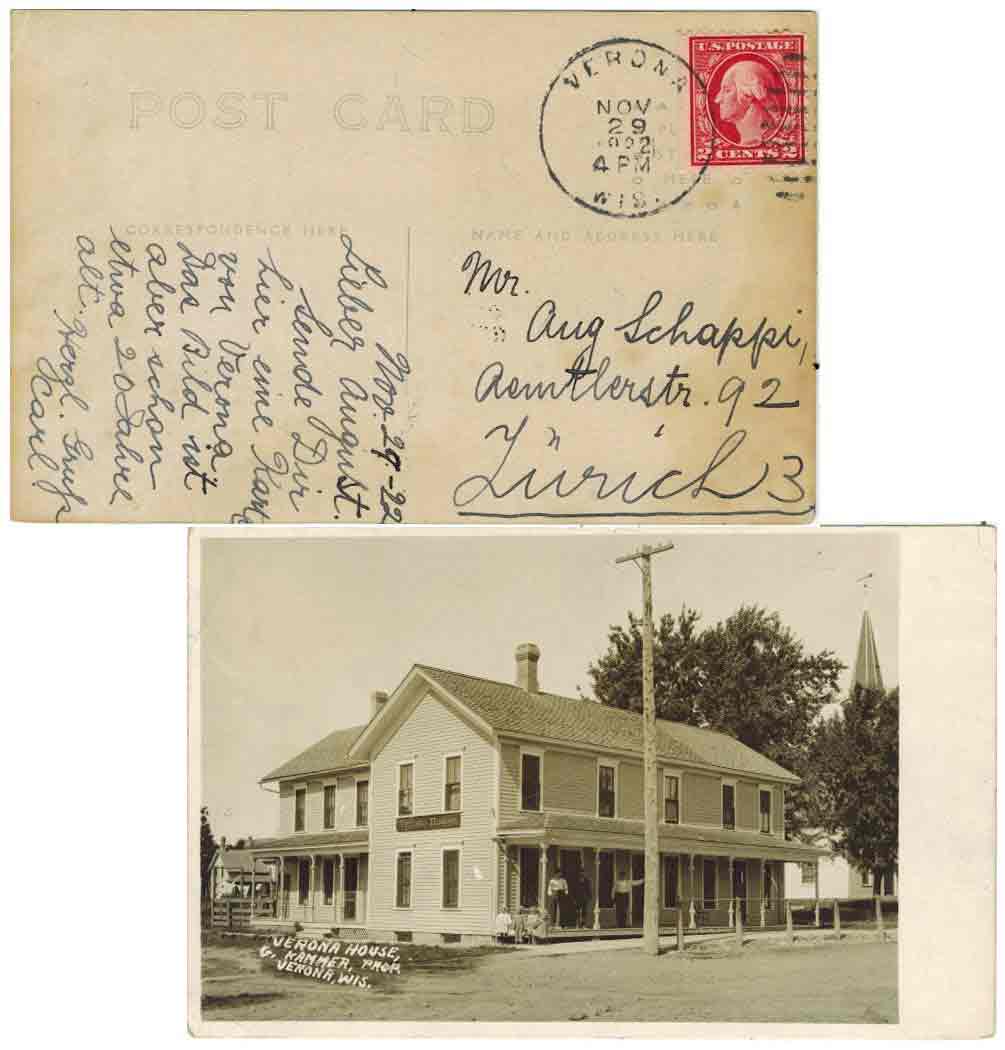 POST CARD
VERONA
NOV
29
4 PM
WIS.
U.S. POSTAGE
2 CENTS 2
HERE
CORRESPONDENCE HERE
NAME AND ADDRESS HERE
Nov. 29-22
Lieber August.
Sende Dir
hier eine Karte
von Verona
Das Bild ist
aber schon
etwa 20 Jahre
alt. Herzl. Gruß
Carl
Mr.
Aug Schappi,
Aemtlerstr. 92
Zürich 3
VERONA HOUSE,
G. HAMMER, PROP.
VERONA, WIS.